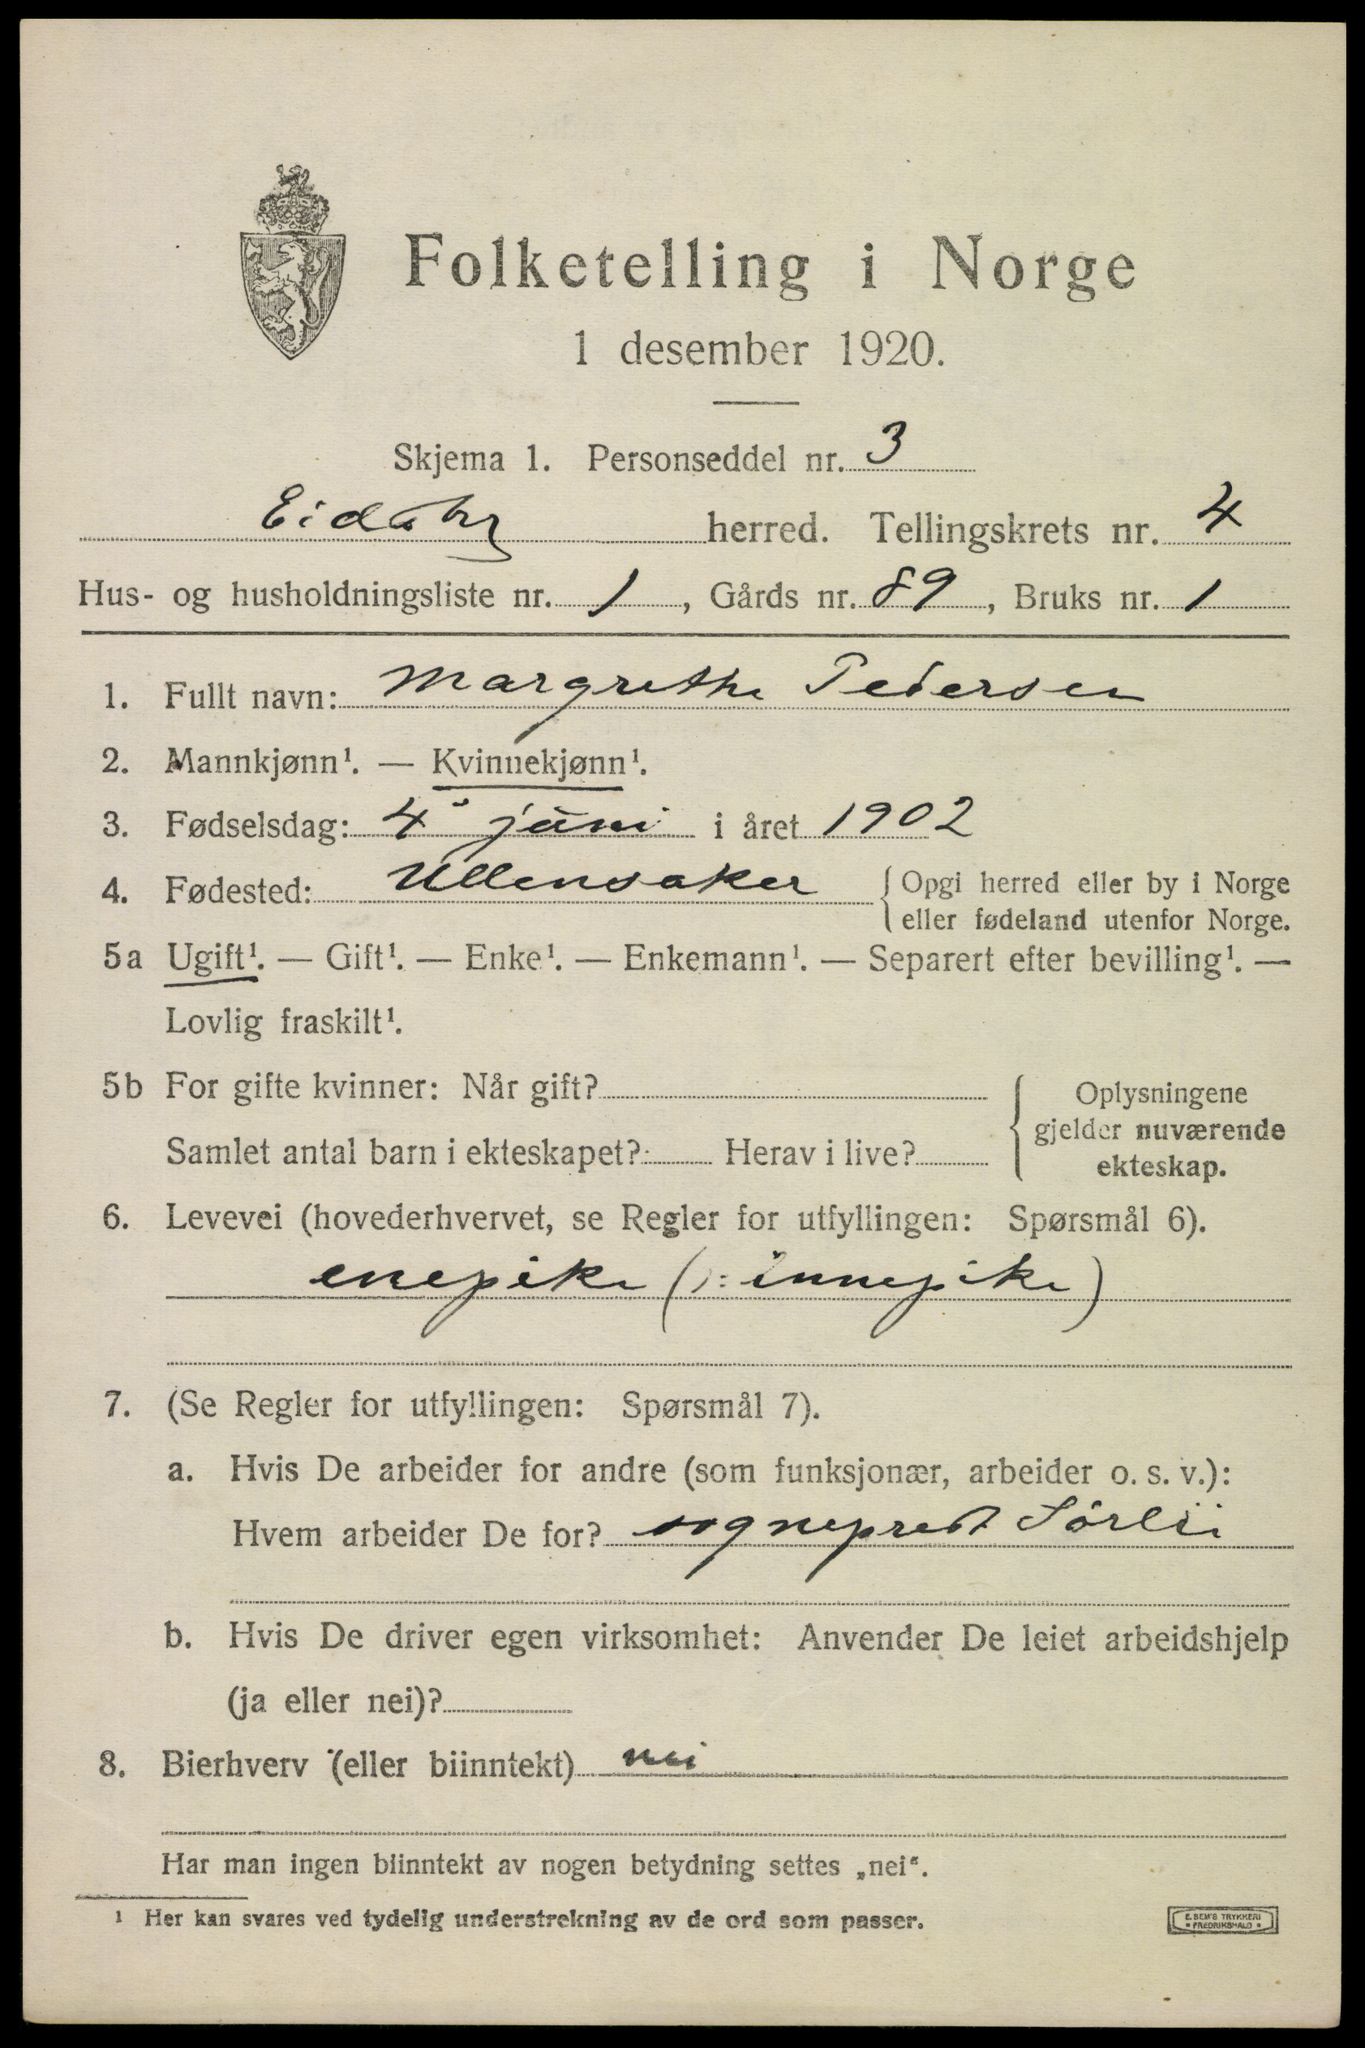 Folketelling i Norge
1 desember 1920.
Skjema 1. Personseddel nr. 3
Eidsberg herred. Tellingskrets nr. 4
Hus- og husholdningsliste nr. 1, Gårds nr. 89, Bruks nr. 1
1. Fullt navn: Margrethe Pedersen
2. Mannkjønn¹. — Kvinnekjønn¹.
3. Fødselsdag: 4 juni i året 1902
4. Fødested: Ullensaker { Opgi herred eller by i Norge
eller fødeland utenfor Norge.
5a Ugift¹. — Gift¹. — Enke¹. — Enkemann¹. — Separert efter bevilling¹. —
Lovlig fraskilt¹.
5b For gifte kvinner: Når gift?
Samlet antal barn i ekteskapet? Herav i live?
{ Oplysningene
gjelder nuværende
ekteskap.
6. Levevei (hovederhvervet, se Regler for utfyllingen: Spørsmål 6).
enepike (ɔ: innepike)
7. (Se Regler for utfyllingen: Spørsmål 7).
a. Hvis De arbeider for andre (som funksjonær, arbeider o. s. v.):
Hvem arbeider De for? sogneprest Sörlii
b. Hvis De driver egen virksomhet: Anvender De leiet arbeidshjelp
(ja eller nei)?
8. Bierhverv (eller biinntekt) nei
Har man ingen biinntekt av nogen betydning settes „nei“.
¹ Her kan svares ved tydelig understrekning av de ord som passer.
E. SEM'S TRYKKERI
FREDRIKSHALD